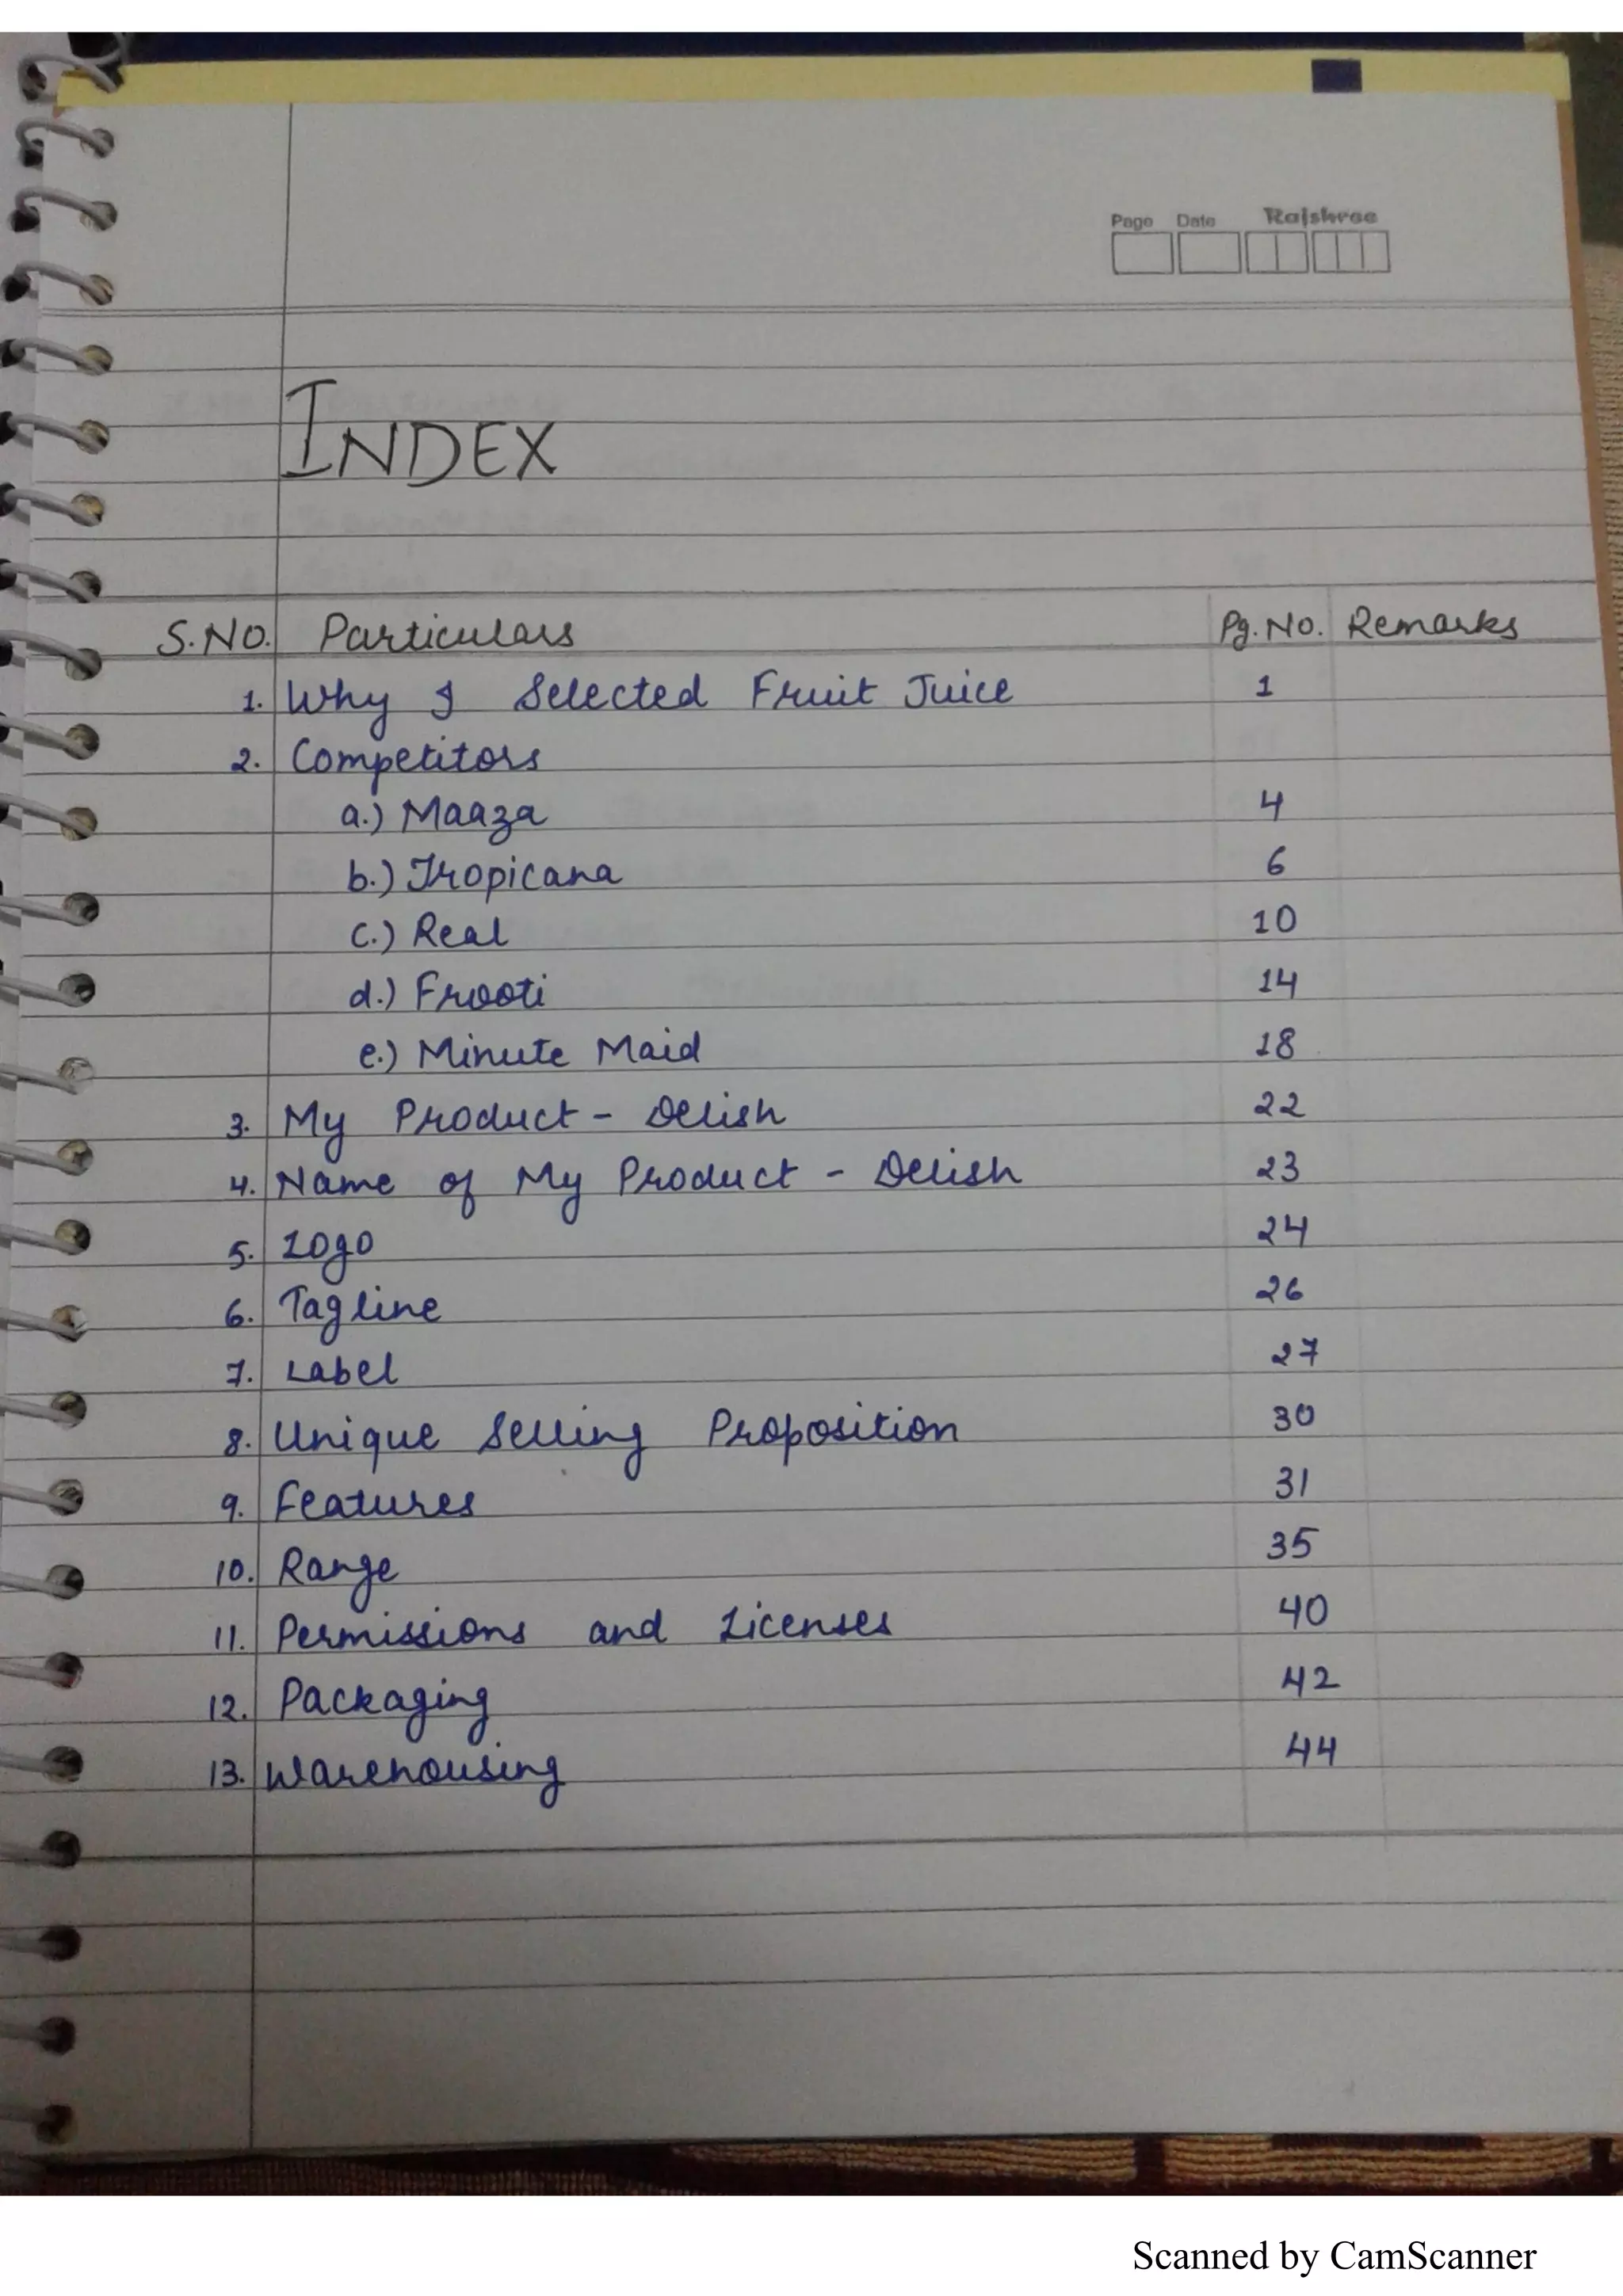 Page Date Rajshree
INDEX
S.No. Particulars Pg. No. Remarks
1. Why I Selected Fruit Juice 1
2. Competitors
a.) Maaza 4
b.) Tropicana 6
c.) Real 10
d.) Frooti 14
e.) Minute Maid 18
3. My Product - Delish 22
4. Name of My Product - Delish 23
5. Logo 24
6. Tagline 26
7. Label 27
8. Unique Selling Proposition 30
9. Features 31
10. Range 35
11. Permissions and Licenses 40
12. Packaging 42
13. Warehousing 44
Scanned by CamScanner